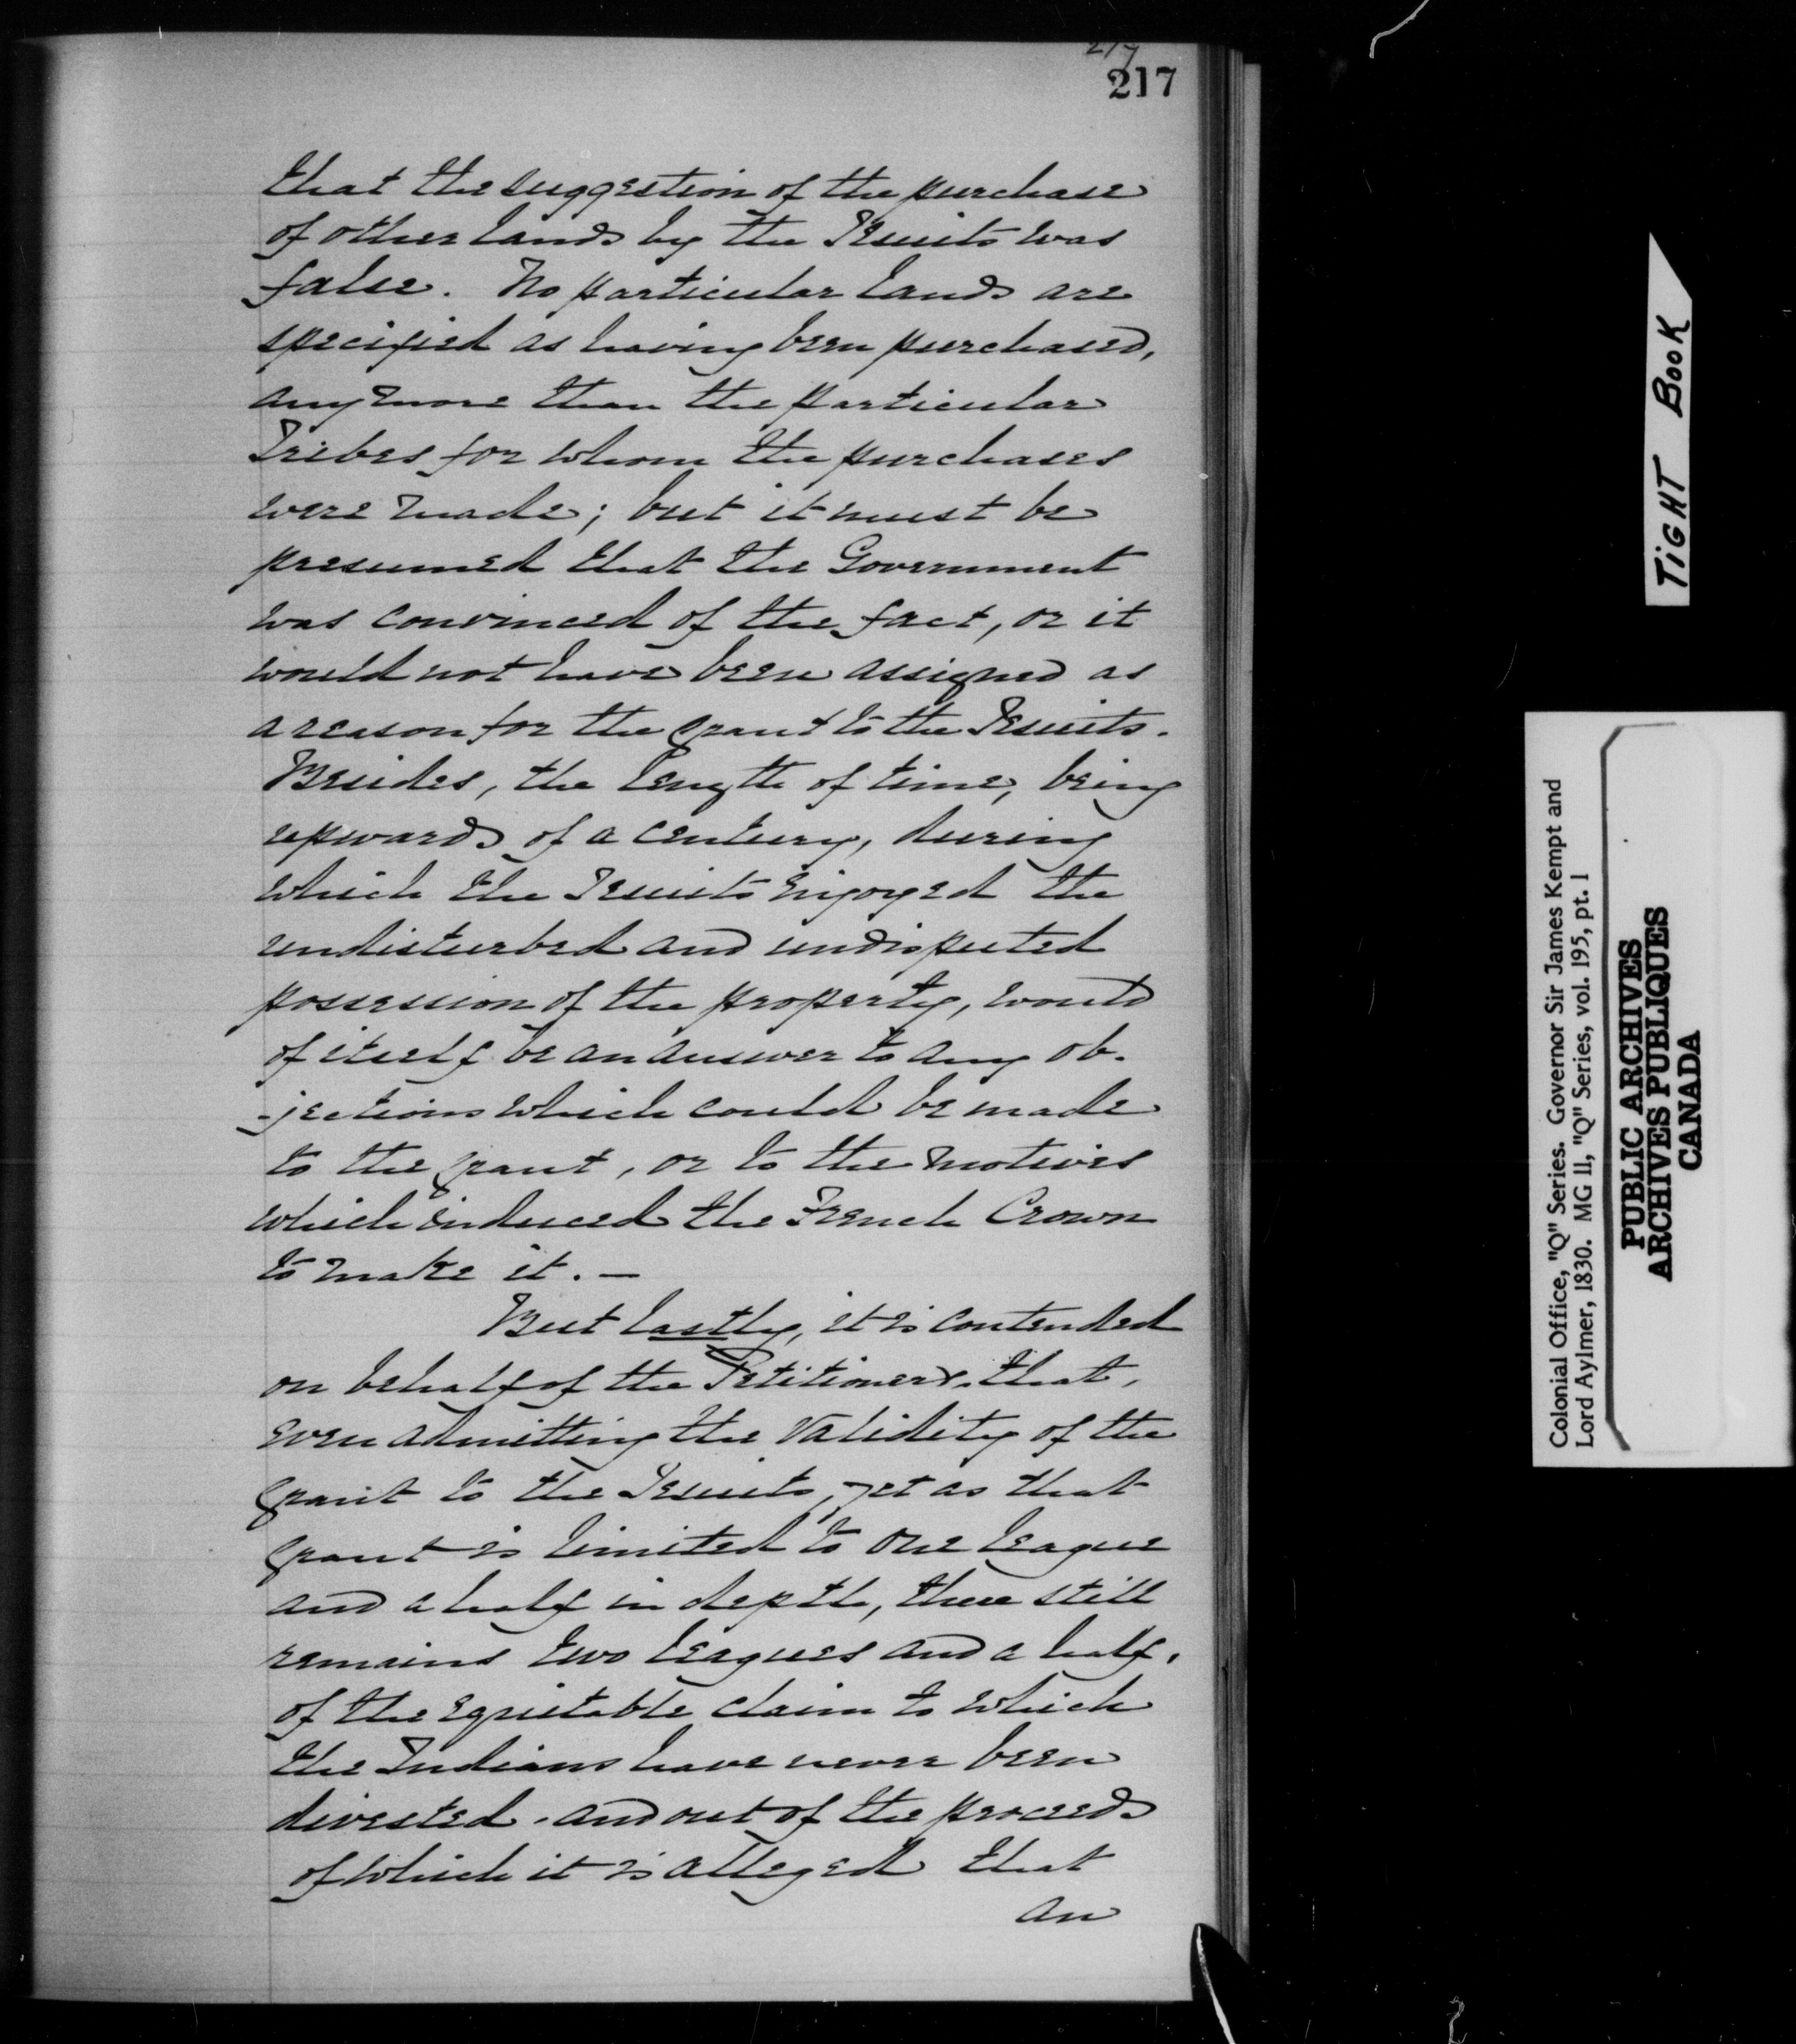 217
217
that the suggestion of the purchase
of other lands by the Jesuits was
false. No particular lands are
specified as having been purchased,
any more than the particular
Tribes for whom the purchases
were made; but it must be
presumed that the Government
was convinced of the fact, or it
would not have been assigned as
a reason for the grant to the Jesuits.
Besides, the length of time, being
upwards of a century, during
which the Jesuits enjoyed the
undisturbed and undisputed
possession of the property, would
of itself be an answer to any ob-
-jections which could be made
to the grant, or to the motives
which induced the French Crown
to make it. —
But lastly, it is contended
on behalf of the Petitioners, that,
even admitting the validity of the
grant to the Jesuits, yet as that
grant is limited to one league
and a half in depth, there still
remains two leagues and a half,
of the equitable claim to which
the Indians have never been
divested. and out of the proceeds
of which it is alleged that
an
TIGHT BOOK
Colonial Office, "Q" Series. Governor Sir James Kempt and
Lord Aylmer, 1830. MG 11, "Q" Series, vol. 195, pt. 1
PUBLIC ARCHIVES
ARCHIVES PUBLIQUES
CANADA